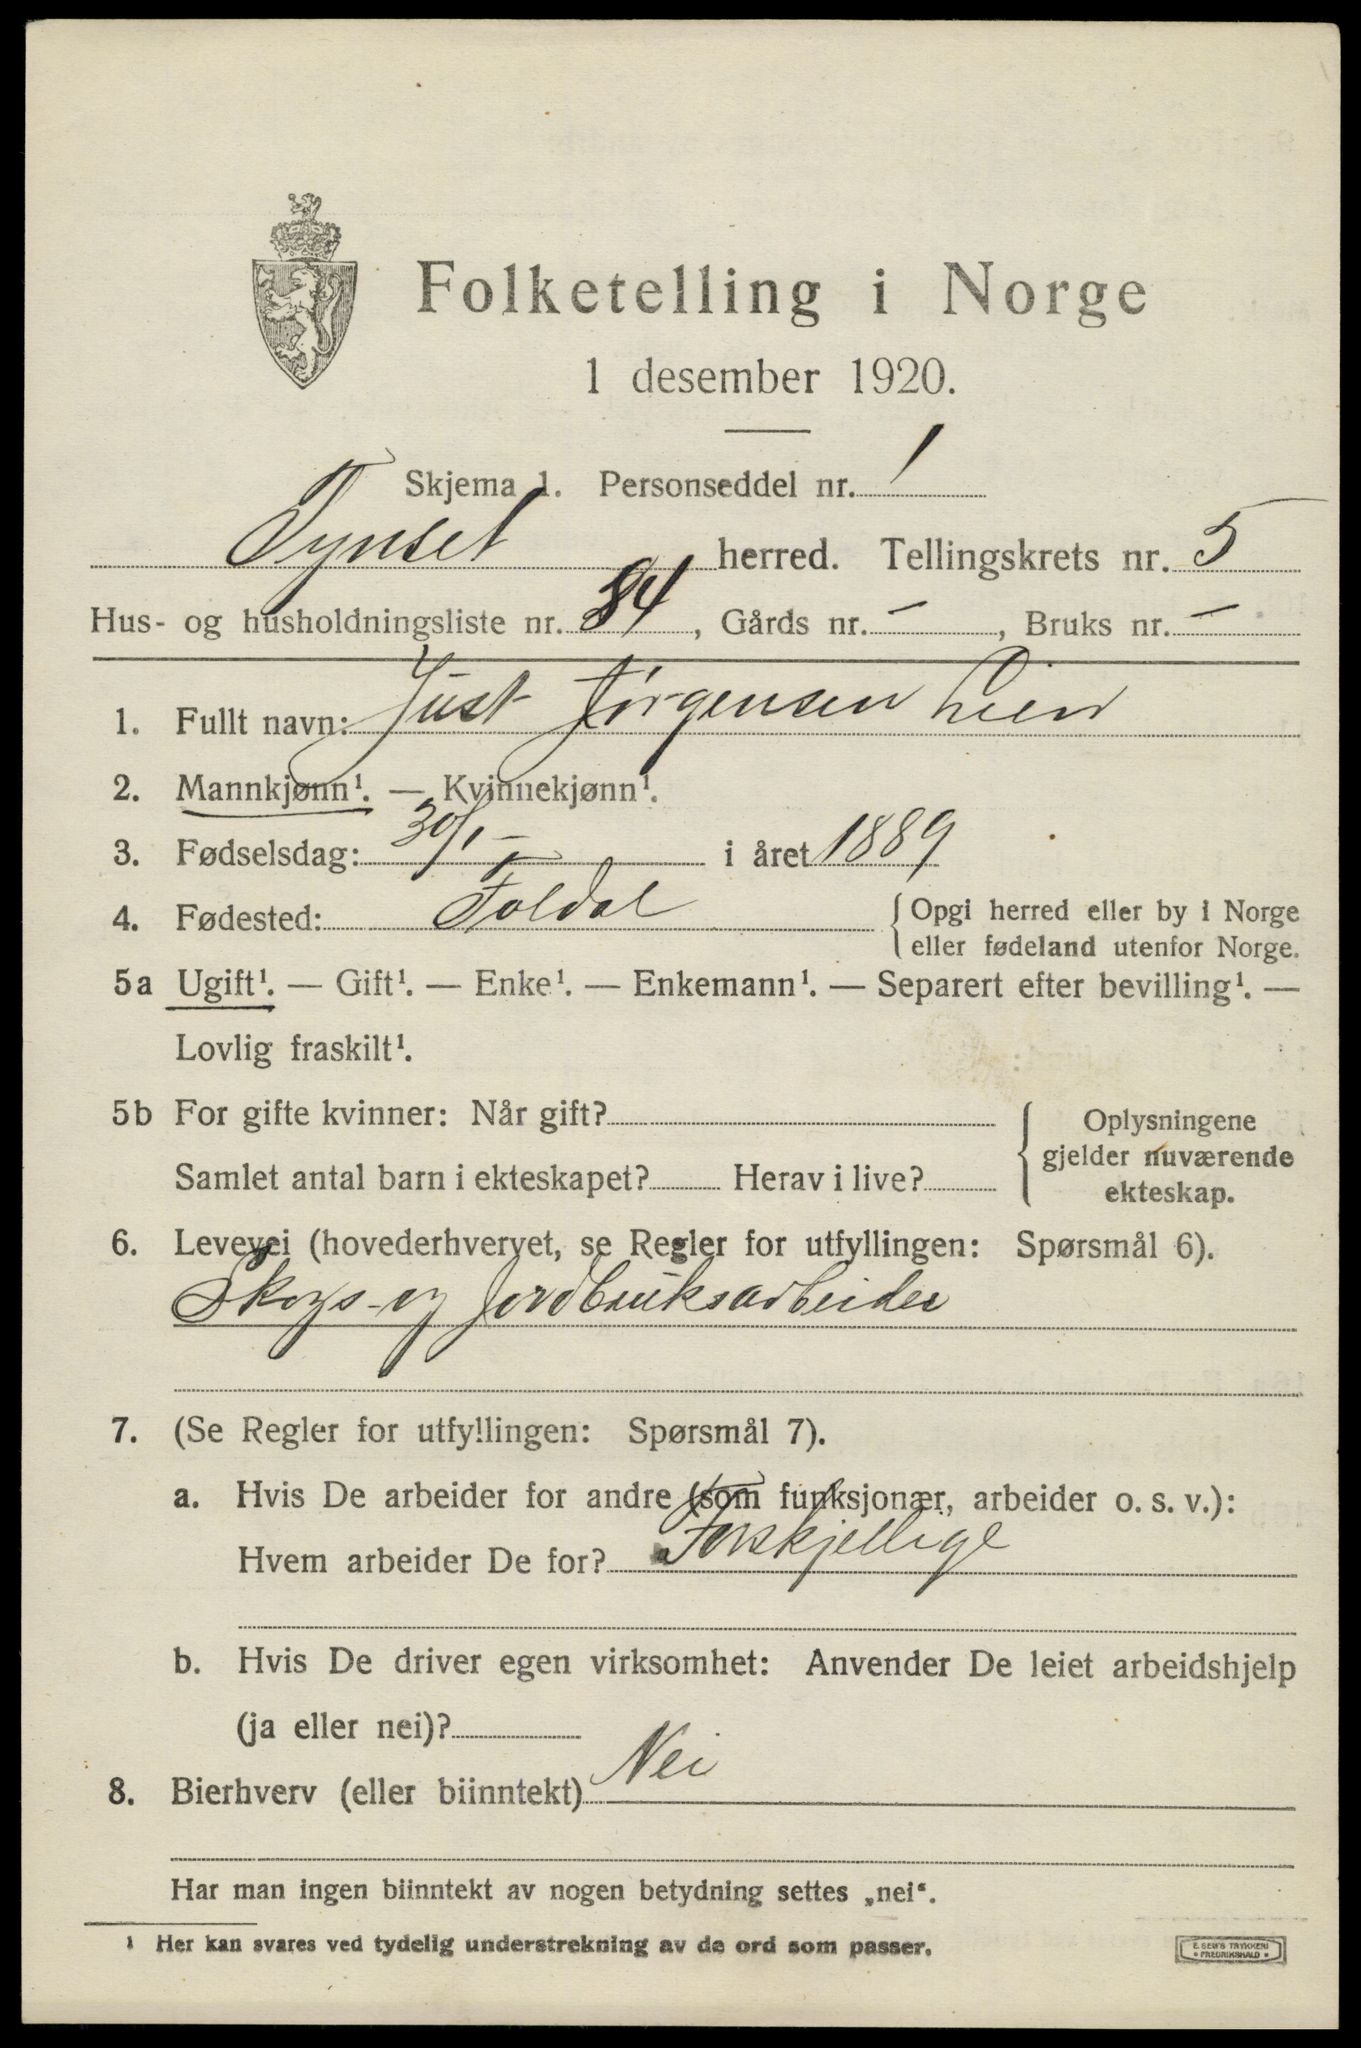 Folketelling i Norge
1 desember 1920.
Skjema 1. Personseddel nr. 1
Tynset herred. Tellingskrets nr. 5
Hus- og husholdningsliste nr. 84, Gårds nr. –, Bruks nr. –
1. Fullt navn: Just Jørgensen Lien
2. Mannkjønn¹. — Kvinnekjønn¹.
3. Fødselsdag: 30/1 – i året 1889
4. Fødested: Foldal { Opgi herred eller by i Norge
eller fødeland utenfor Norge.
5a Ugift¹. — Gift¹. — Enke¹. — Enkemann¹. — Separert efter bevilling¹. —
Lovlig fraskilt¹.
5b For gifte kvinner: Når gift? { Oplysningene
gjelder nuværende
Samlet antal barn i ekteskapet? Herav i live?
ekteskap.
6. Levevei (hovederhvervet, se Regler for utfyllingen: Spørsmål 6).
Skogs- og Jordbruksarbeider
7. (Se Regler for utfyllingen: Spørsmål 7).
a. Hvis De arbeider for andre (som funksjonær, arbeider o. s. v.):
Hvem arbeider De for? Forskjellige
b. Hvis De driver egen virksomhet: Anvender De leiet arbeidshjelp
(ja eller nei)?
8. Bierhverv (eller biinntekt) Nei
Har man ingen biinntekt av nogen betydning settes „nei“.
¹ Her kan svares ved tydelig understrekning av de ord som passer.
E. SEM'S TRYKKERI
• FREDRIKSHALD •